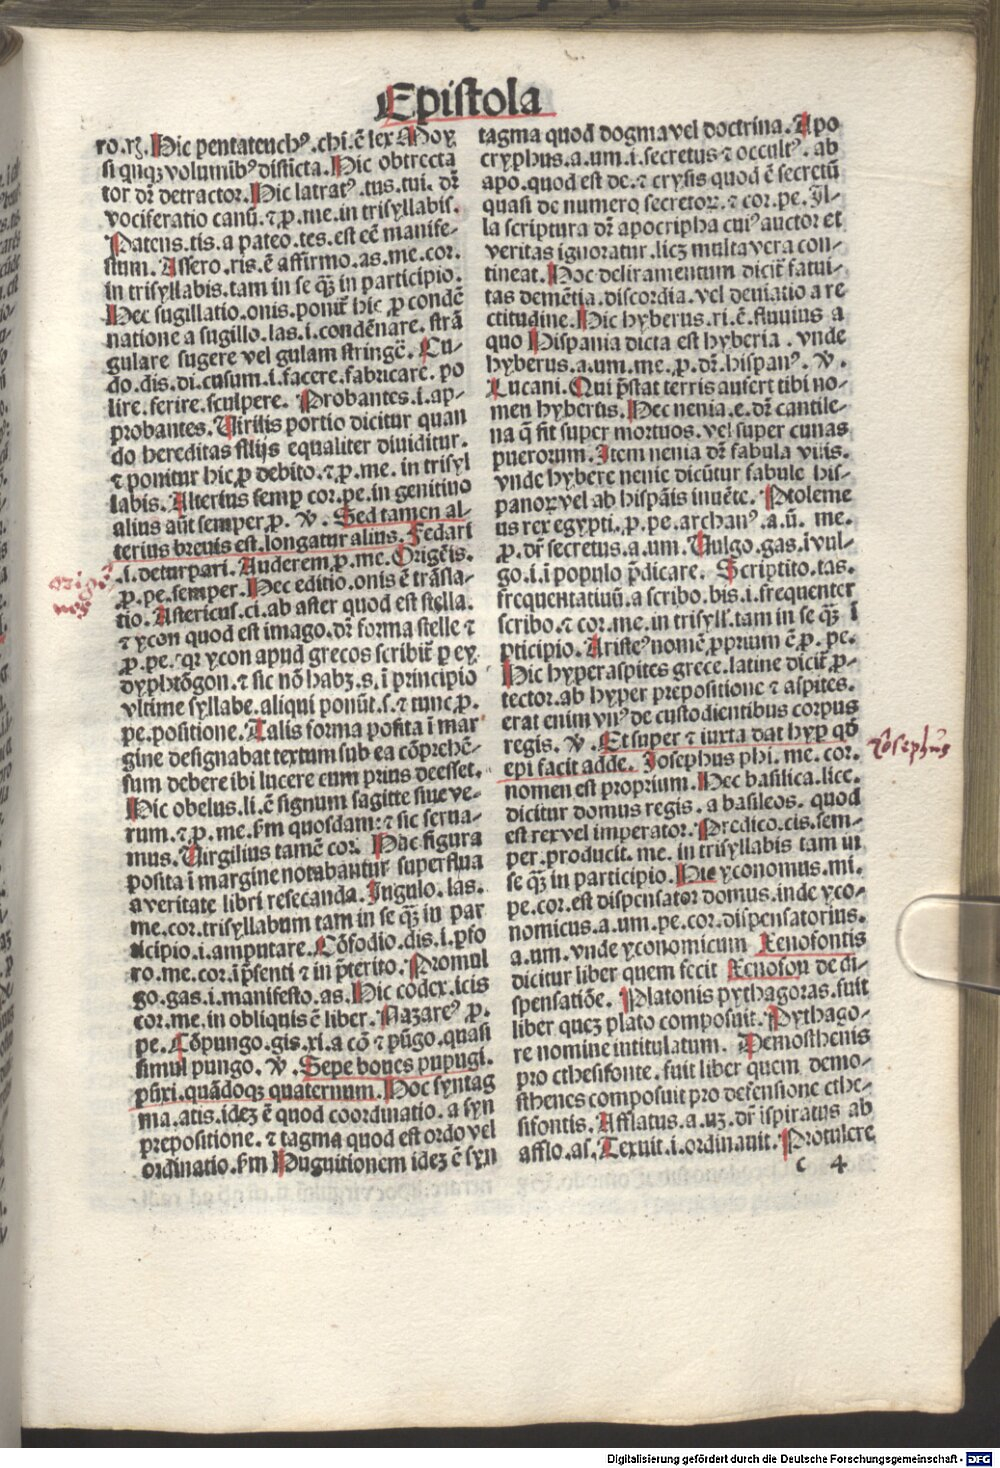 Epistola
ro.rꝫ. Hic pentateuchꝰ.chi.ē lex Moy
si quiqꝫ volumibꝰ distīcta. Hic obtrecta
tor dr̄ detractor. Hic latratꝰ.tus.tui. dr̄
vociferatio canū. ⁊ ꝓ.me.in trisyllabis.
Patens.tis.a pateo.tes.est eē manife-
stum. Assero.ris.ē affirmo.as.me.cor.
in trisyllabis.tam in se qꝫ in participio.
Hec sugillatio.onis.ponit᷑ hic ꝓ condē
natione a sugillo.las.i.condēnare.strā
gulare sugere vel gulam stringē̄. Cu-
do.dis.di.cusum.i.facere.fabricare. po
lire.ferire.sculpere. Probantes.i.ap-
probantes. Virilis portio dicitur quan
do hereditas filijs equaliter diuiditur.
⁊ ponitur hic ꝓ debito.⁊ ꝓ.me. in trisyl
labis. Alterius semꝑ cor.pe.in genitiuo
alius aūt semper ꝓ. ℣. Sed tamen al-
terius breuis est.longatur alius. Fedari
.i.deturpari. Auderem ꝓ.me. Origēis.
ꝓ.pe.semper. Hec editio.onis ē trāsla-
tio. Astericus.ci.ab aster quod est stella.
⁊ ycon quod est imago.dr̄ forma stelle ⁊
ꝓ.pe.qr ycon apud grecos scribit᷑ ꝑ ey
dyphtōgon.⁊ sic nō habꝫ.s.ī principio
vltime syllabe.aliqui ponūt.s.⁊ tunc ꝓ.
pe.positione. Talis forma posita ī mar
gine designabat textum sub ea cōprehē-
sum debere ibi lucere cum prius deesset.
Hic obelus.li.ē signum sagitte siue ve-
rum.⁊ ꝓ.me.ẜm quosdam: ⁊ sic serua-
mus. Virgilius tamē cor. Hac figura
posita ī margine notabantur superflua
a veritate libri resecanda. Iugulo.las.
me.cor.trisyllabum tam in se qꝫ in par
ticipio.i.amputare. Cōfodio.dis.i.ꝑfo
ro.me.cor.ī p̄senti ⁊ in p̄terito. Promul
go.gas.i.manifesto.as. Hic codex.icis
cor.me.in obliquis ē liber. Nazareꝰ ꝓ.
pe. Cōpungo.gis.xi.a cō ⁊ pūgo.quasi
simul pungo. ℣. Sepe boues pupugi.
pūxi.quādoqꝫ quaternum. Hoc syntag
ma.atis.idez ē quod coordinatio. a syn
prepositione.⁊ tagma quod est ordo vel
ordinatio.ẜm Huguitionem idez ē syn
tagma quod dogma vel doctrina. Apo
cryphus.a.um.i.secretus ⁊ occultꝰ. ab
apo.quod est de.⁊ crysis quod ē secretū
quasi de numero secretoꝝ.⁊ cor.pe. Il-
la scriptura dr̄ apocripha cuiꝰ auctor et
veritas ignoratur.licꝫ multa vera con-
tineat. Hoc deliramentum dicit᷑ fatui-
tas demētia.discordia.vel deuiatio a re
ctitudine. Hic hyberus.ri.ē.fluuius a
quo Hispania dicta est hyberia . vnde
hyberus.a.um.me.ꝓ.dr̄.hispanꝰ. ℣.
Lucani. Qui p̄stat terris aufert tibi no-
men hyberus. Hec nenia.e.dr̄ cantile-
na q̄ fit super mortuos.vel super cunas
puerorum. Item nenia dr̄ fabula vilis.
vnde hybere nenie dicūtur fabule his-
panoꝝ vel ab hispāis inuēte. Ptoleme
us rex egypti.ꝓ.pe.archanꝰ.a.ū. me.
ꝓ.dr̄ secretus.a.um. Vulgo.gas.ī vul-
go.i.ī populo p̄dicare. Scriptito.tas.
frequentatiuū.a scribo.bis.i.frequenter
scribo.⁊ cor.me.in trisyll.tam in se qꝫ ī
ꝑticipio. Aristeꝰ nomē ꝓprium ē ꝓ. pe.
Hic hyperaspites grece.latine dicit᷑ ꝓ-
tector.ab hyper prepositione ⁊ aspites.
erat enim vnꝰ de custodientibus corpus
regis. ℣. Et super ⁊ iuxta dat hyꝑ qd̄
epi facit adde. Iosephus phi.me.cor.
nomen est proprium. Hec basilica.lice.
dicitur domus regis. a basileos. quod
est rex vel imperator. Predico.cis.sem-
per.producit.me. in trisyllabis tam in
se qꝫ in participio. Hic yconomus.mi.
pe.cor.est dispensator domus.inde yco-
nomicus.a.um.pe.cor.dispensatorius.
a.um.vnde yconomicum Xenofontis
dicitur liber quem fecit Xenofon de di-
spensatiōe. Platonis pythagoras.fuit
liber quez plato composuit. Pythago-
re nomine intitulatum. Demosthenis
pro cthesifonte.fuit liber quem demo-
sthenes composuit pro defensione cthe-
sifontis. Afflatus.a uꝫ.dr̄ īspiratus ab
afflo.as. Texuit.i.ordinauit. Protulere
c 4
Iosephus
Digitalisierung gefördert durch die Deutsche Forschungsgemeinschaft - DFG